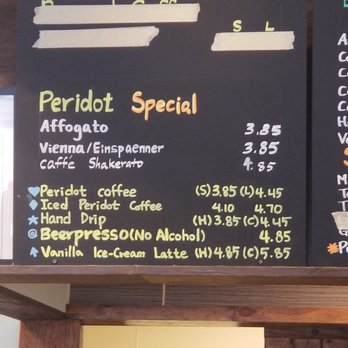 S L
Peridot Special
Affogato 3.85
Vienna/Einspaenner 3.85
Caffé Shakerato 4.85
Peridot coffee (S) 3.85 (L) 4.45
Iced Peridot Coffee 4.10 4.70
Hand Drip (H) 3.85 (C) 4.45
@ Beerpresso (No Alcohol) 4.85
Vanilla Ice-Cream Latte (H) 4.85 (C) 5.85